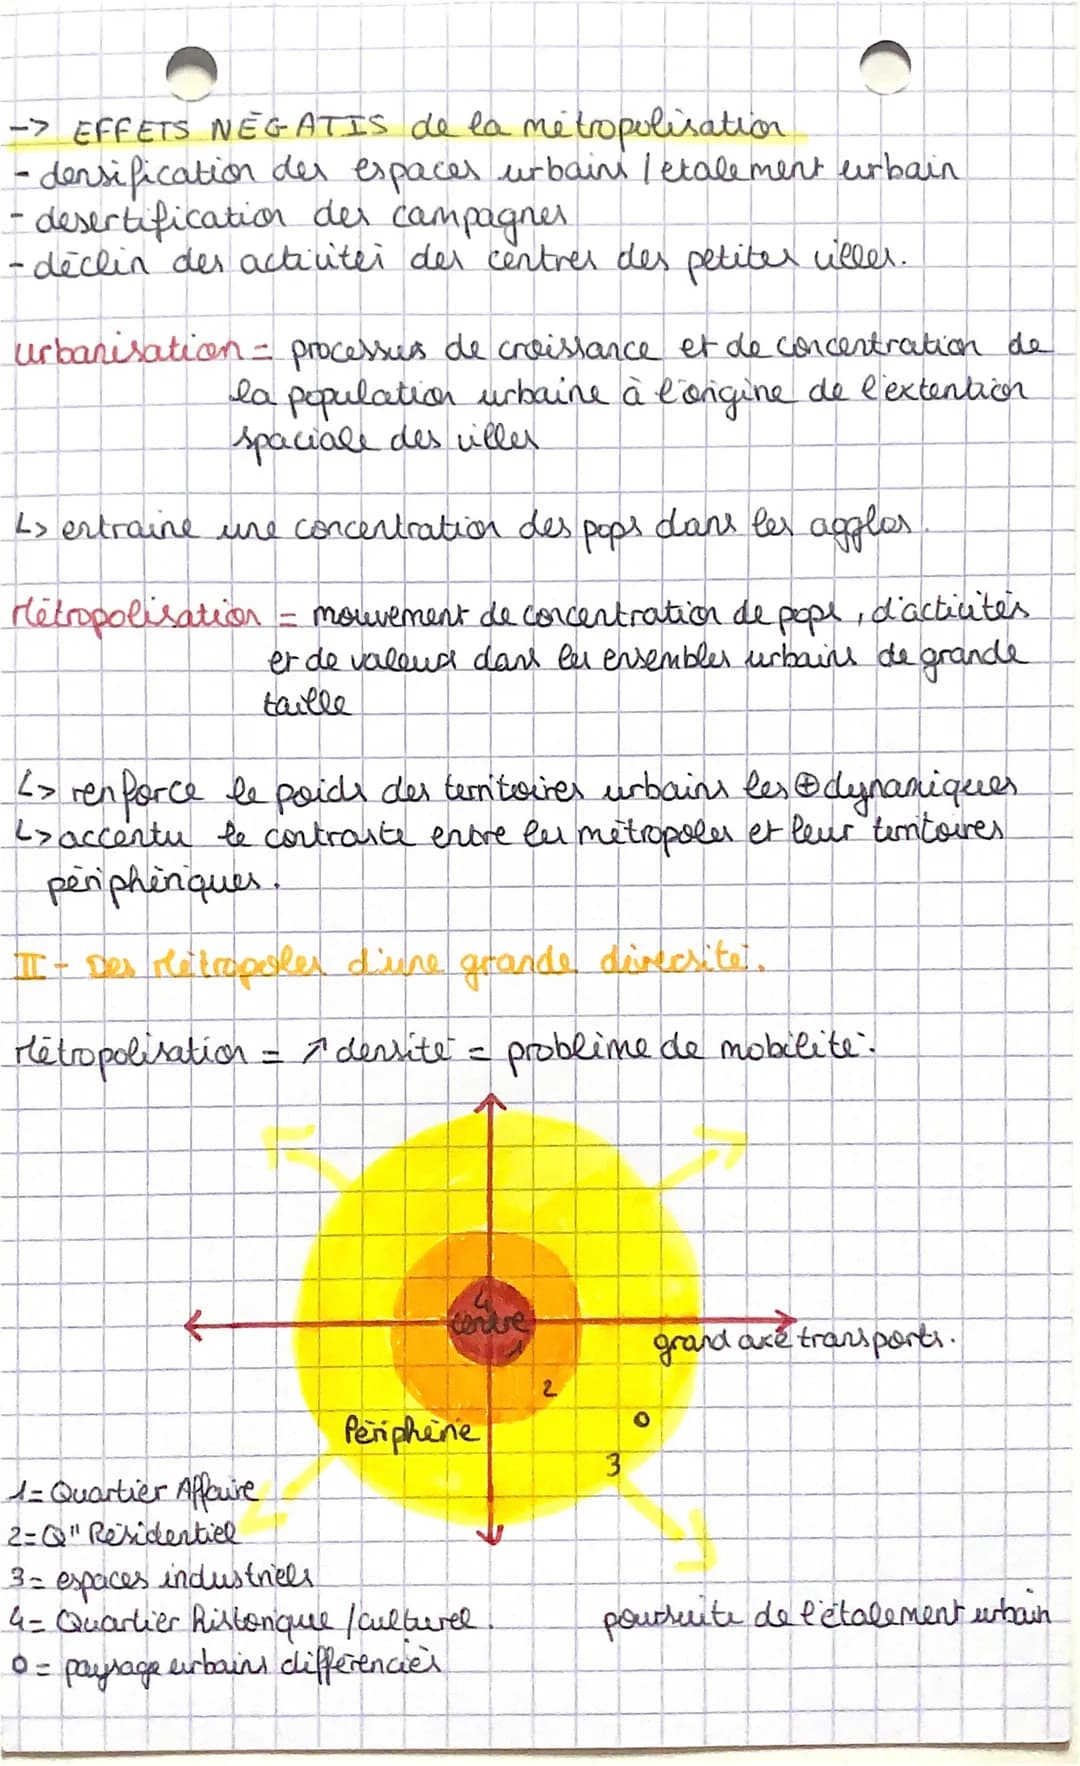 -> EFFETS NÉGATIS de la métropolisation
- densification des espaces urbains / etalement urbain
- desertification des campagnes
- déclin des activités des centres des petites villes.
urbanisation = processus de croissance et de concentration de
la population urbaine à l'origine de l'extention
spaciale des villes
↳ entraine une concentration des pops dans les agglos.
Métropolisation = mouvement de concentration de pops, d'activités
et de valeurs dans les ensembles urbains de grande
taille
↳ renforce le poids des territoires urbains les ⊕ dynamiques
↳ accentu le contraste entre les métropoles et leur territoires
périphériques.
II - Des Métropoles d'une grande diversité.
Métropolisation = ↗ densité = problème de mobilité.
4
centre
1
grand axe transports.
2
Périphérie
0
3
1 = Quartier Affaire
2 = Q" Résidentiel
3 = espaces industriels
4 = Quartier historique / culturel.
poursuite de l'étalement urbain
0 = paysage urbains différenciés